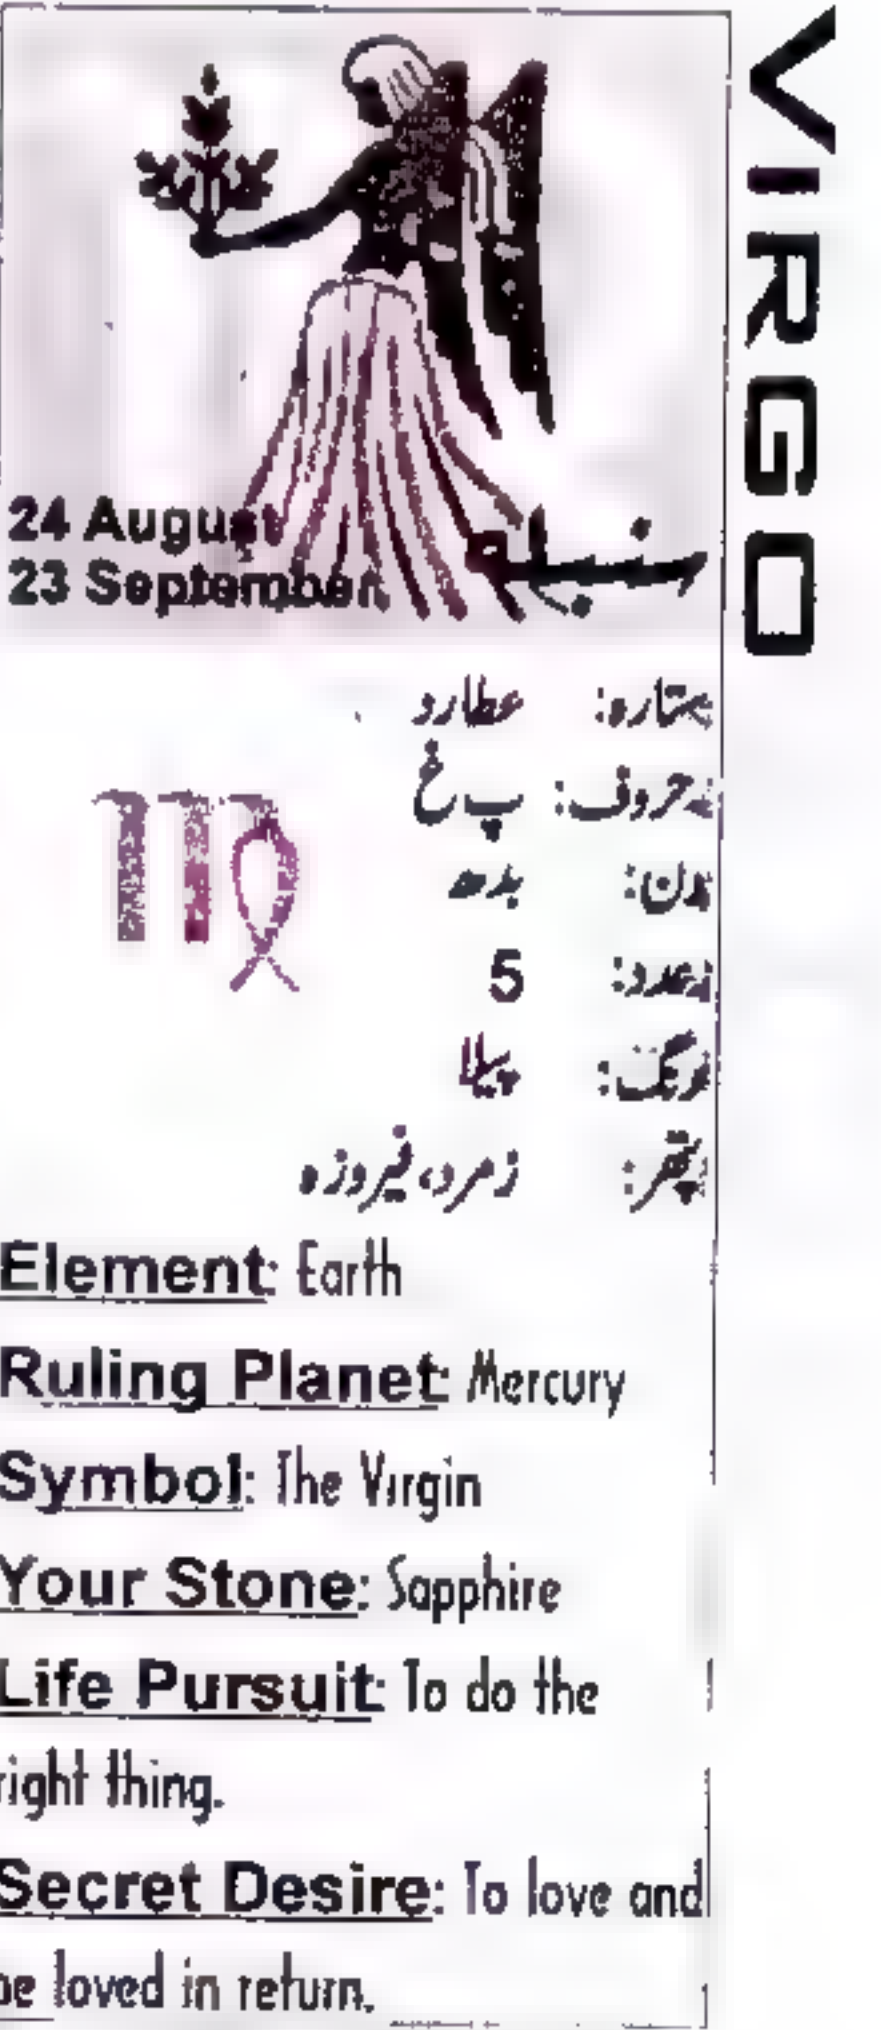 VIRGO
24 August
23 September
سنبلہ
ستارہ: عطارد
حروف: پ غ
دن: بدھ
عدد: 5
رنگ: پیلا
پتھر: زمرد، فیروزہ
Element: Earth
Ruling Planet: Mercury
Symbol: The Virgin
Your Stone: Sapphire
Life Pursuit: To do the
right thing.
Secret Desire: To love and
be loved in return.